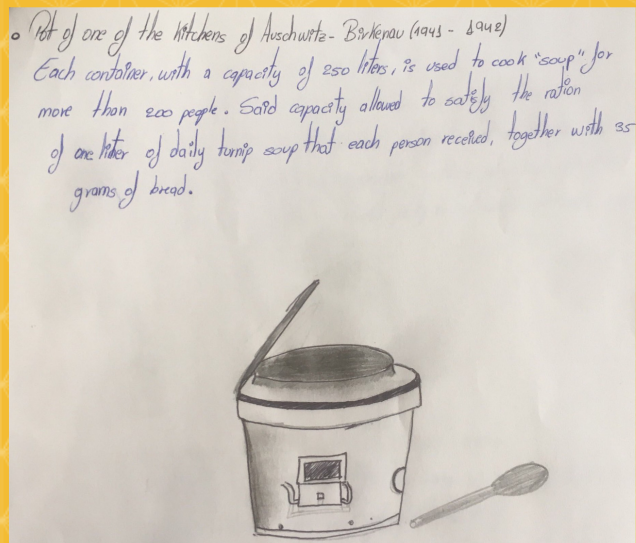 • Pot of one of the kitchens of Auschwitz - Birkenau (1941 - 1942)
Each container, with a capacity of 250 liters, is used to cook "soup" for
more than 200 people. Said capacity allowed to satisfy the ration
of one liter of daily turnip soup that each person received, together with 35
grams of bread.